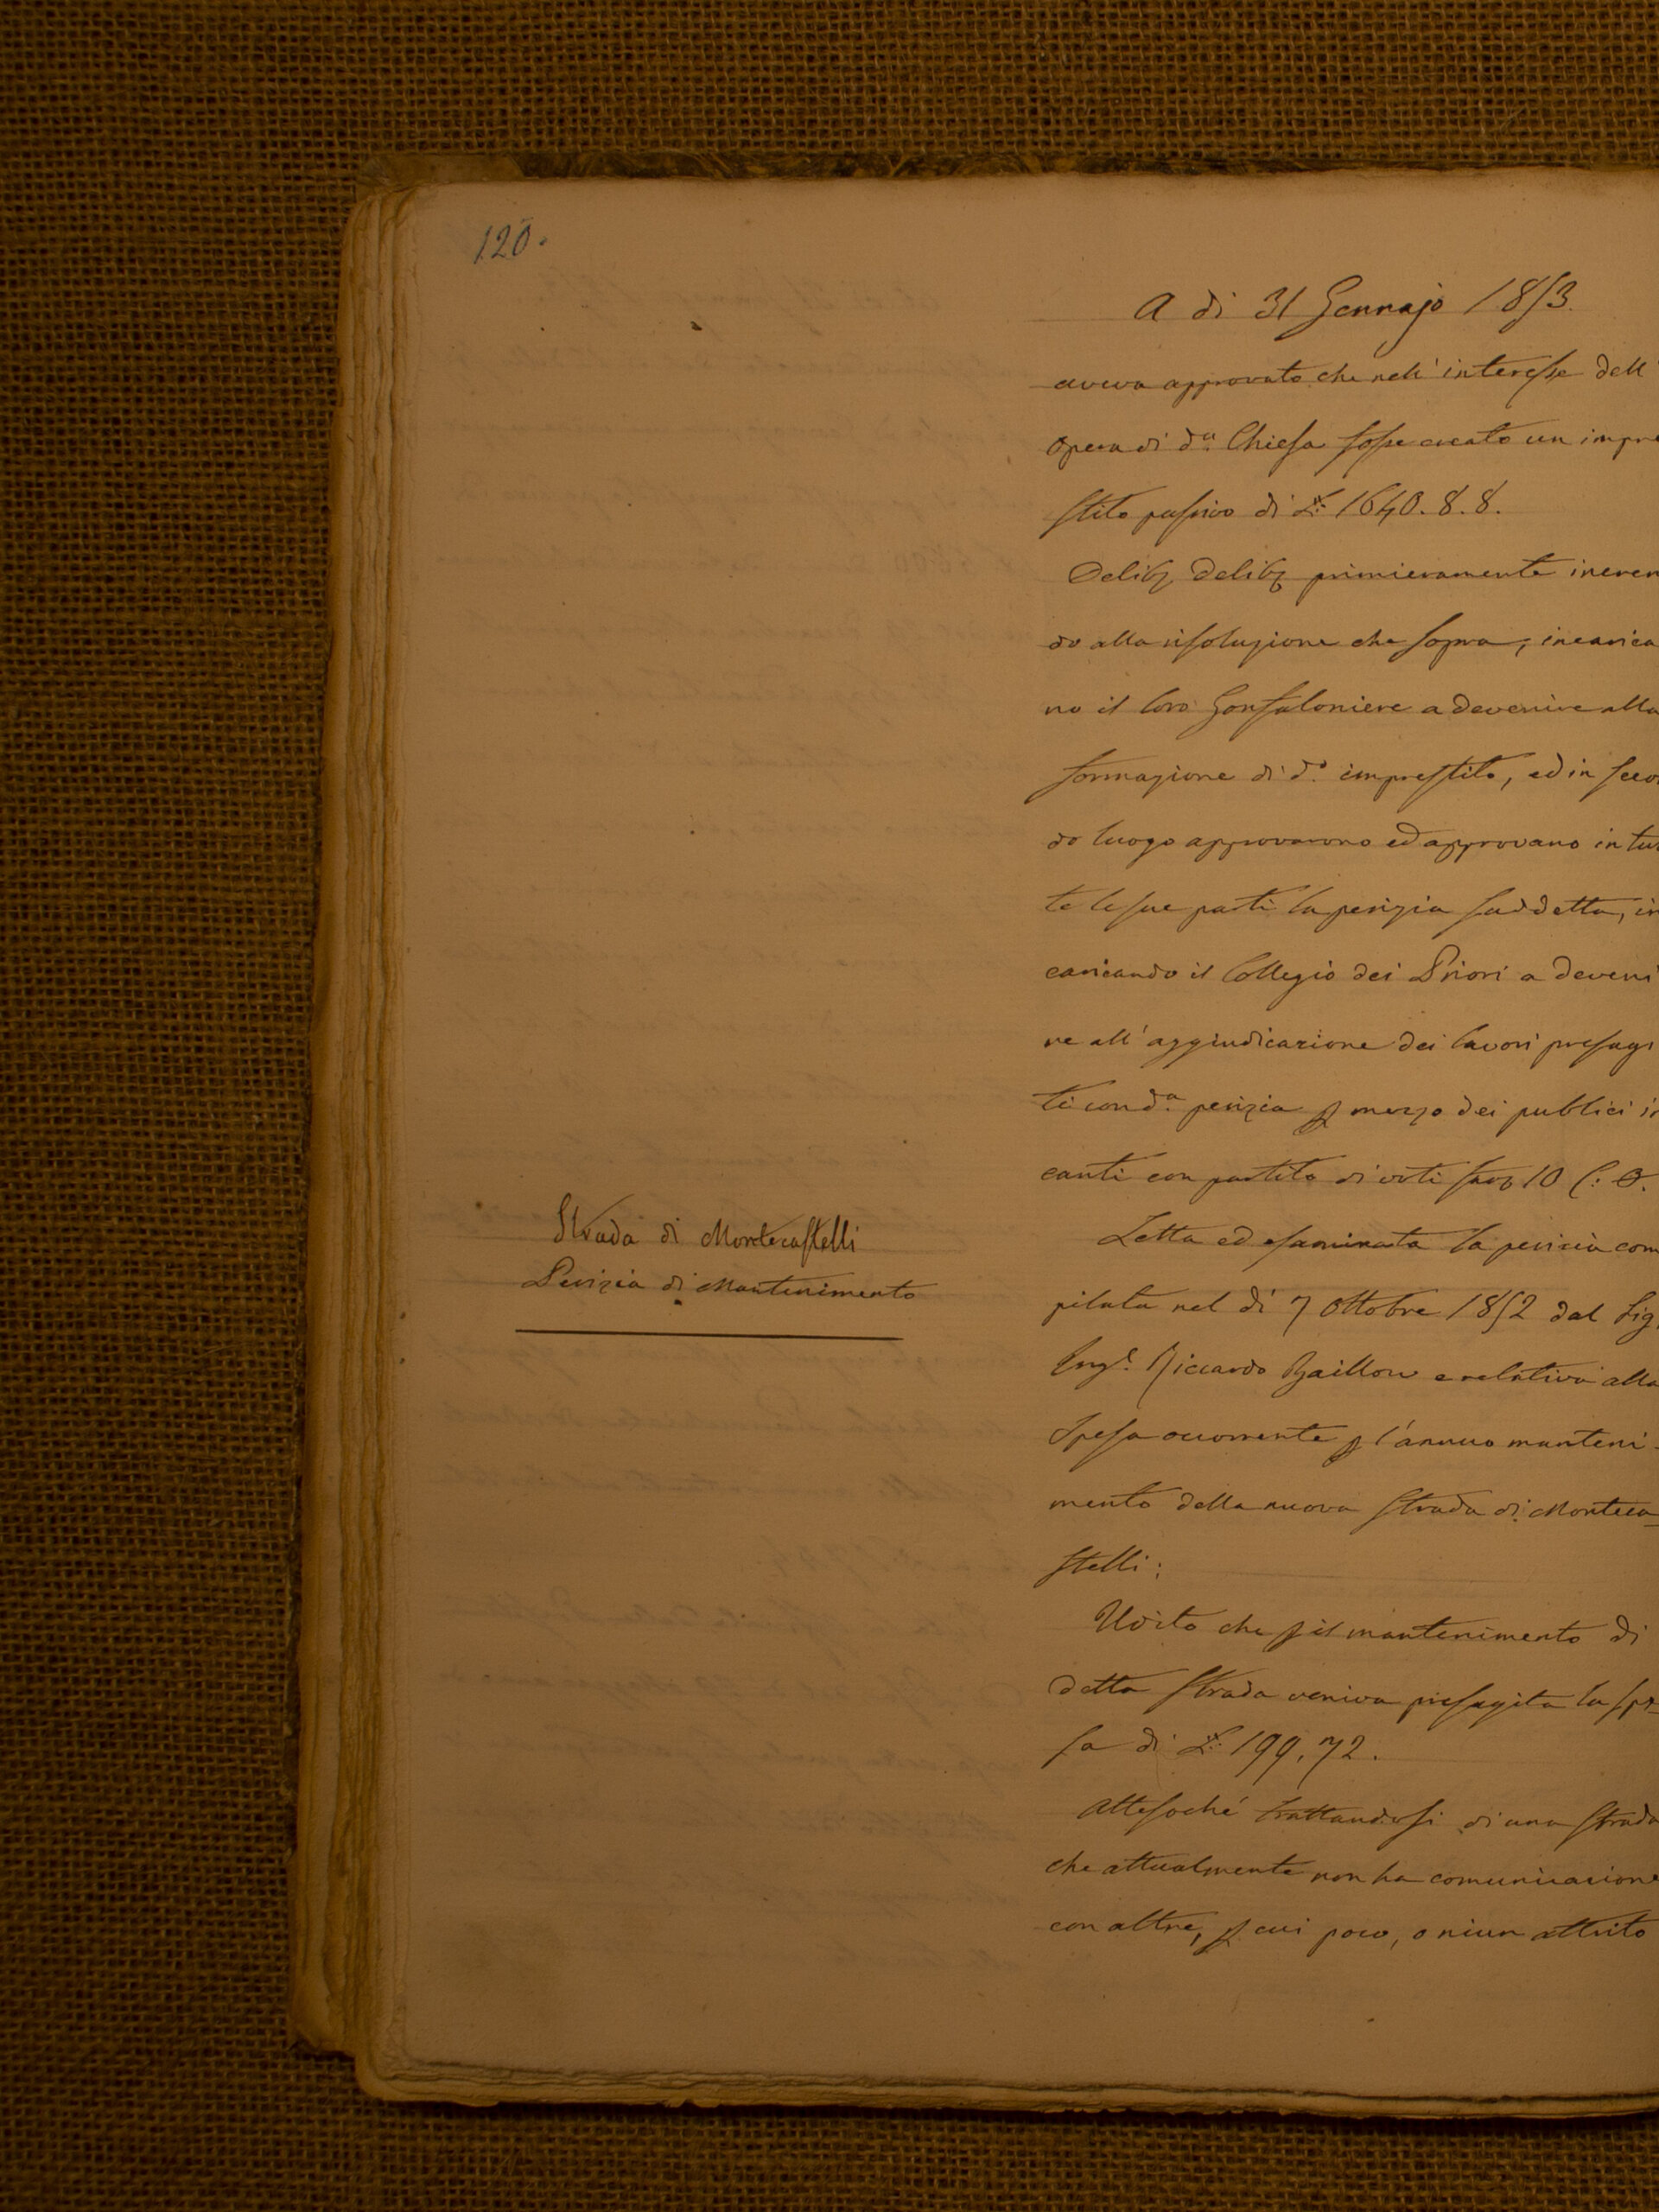 120.
A di 31 Gennajo 1853.
aveva approvato che nell'interesse dell'
Opera di d.a Chiesa fosse creato un impre
stito passivo di L. 1640. 8. 8.
Delib. delib. primieramente ineren
do alla risoluzione che sopra, incarica
no il loro Gonfaloniere a devenire alla
formazione di d.o imprestito, ed in secon
do luogo approvarono ed approvano in tut
te le sue parti la perizia suddetta, in
caricando il Collegio dei Priori a deveni
re all'aggiudicazione dei lavori presagi
ti con d.a perizia p mezzo dei publici in
canti con partito di voti fav. 10 C: 0.
Strada di Montecastelli
Perizia di Mantenimento
Letta ed esaminata la perizia com
pilata nel di 7 Ottobre 1852 dal Sig.
Ing.e Riccardo e relativa alla
Spesa occorrente p l'annuo manteni-
mento della nuova Strada di Monteca=
stelli;
Udito che p il mantenimento di
detta Strada veniva presagita la spe=
sa di L. 199, 72.
Attesochè trattandosi di una Strada
che attualmente non ha comunicazione
con altre, p cui poco, o niun attrito